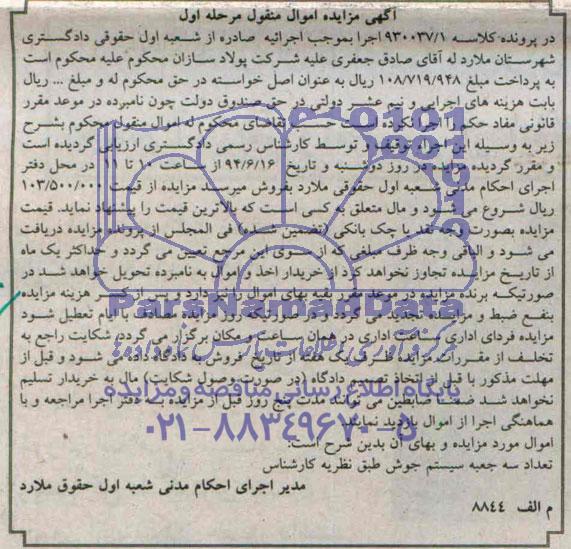 آگهی مزایده اموال منقول مرحله اول
در پرونده کلاسه ۹۳۰۰۳۷/۱ اجرا بموجب اجرائیه صادره از شعبه اول حقوقی دادگستری
شهرستان ملارد له آقای صادق جعفری علیه شرکت پولاد سازان محکوم علیه محکوم است
به پرداخت مبلغ ۱۰۸/۷۱۹/۹۴۸ ریال به عنوان اصل خواسته در حق محکوم له و مبلغ ... ریال
بابت هزینه های اجرایی و نیم عشر دولتی در حق صندوق دولت چون نامبرده در موعد مقرر
قانونی مفاد حکم را اجرا نکرده است حسب تقاضای محکوم له اموال منقول محکوم بشرح
زیر به وسیله این اجرا توقیف و توسط کارشناس رسمی دادگستری ارزیابی گردیده است
و مقرر گردیده مزایده در روز دوشنبه و تاریخ ۹۴/۶/۱۶ از ساعت ۱۰ تا ۱۱ در محل دفتر
اجرای احکام مدنی شعبه اول حقوقی ملارد بفروش میرسد مزایده از قیمت ۱۰۳/۵۰۰/۰۰۰
ریال شروع می شود و مال متعلق به کسی است که بالاترین قیمت را پیشنهاد نماید. قیمت
مزایده بصورت وجه نقد یا چک بانکی (تضمین شده) فی المجلس از برنده مزایده دریافت
می شود و الباقی وجه ظرف مبلغی که از سوی این مرجع تعیین می گردد و حداکثر یک ماه
از تاریخ مزایده تجاوز نخواهد کرد از خریدار اخذ و اموال به نامبرده تحویل خواهد شد در
صورتیکه برنده مزایده در موعد مقرر بقیه بهای اموال را نپردازد و پس از کسر هزینه مزایده
بنفع ضبط و مزایده تجدید می گردد و در صورتیکه روز مزایده مصادف با ایام تعطیل شود
مزایده فردای اداری ساعت اداری در همان ساعت و مکان برگزار می گردد، شکایت راجع به
تخلف از مقررات مزایده ظرف یک هفته از تاریخ فروش به دادگاه داده می شود و قبل از
مهلت مذکور یا قبل از اتخاذ تصمیم دادگاه (در صورت وصول شکایت) مال به خریدار تسلیم
نخواهد شد ضمنا می توانند مدت پنج روز قبل از مزایده به دفتر اجرا مراجعه و با
هماهنگی اجرا از اموال بازدید نمایند.
اموال مورد مزایده و بهای آن بدین شرح است:
تعداد سه جعبه سیستم جوش طبق نظریه کارشناس
مدیر اجرای احکام مدنی شعبه اول حقوق ملارد
م الف ۸۸۴۴
ParsNamadData
پایگاه اطلاع رسانی مناقصه و مزایده
۰۲۱-۸۸۳۴۹۶۷۰-۵